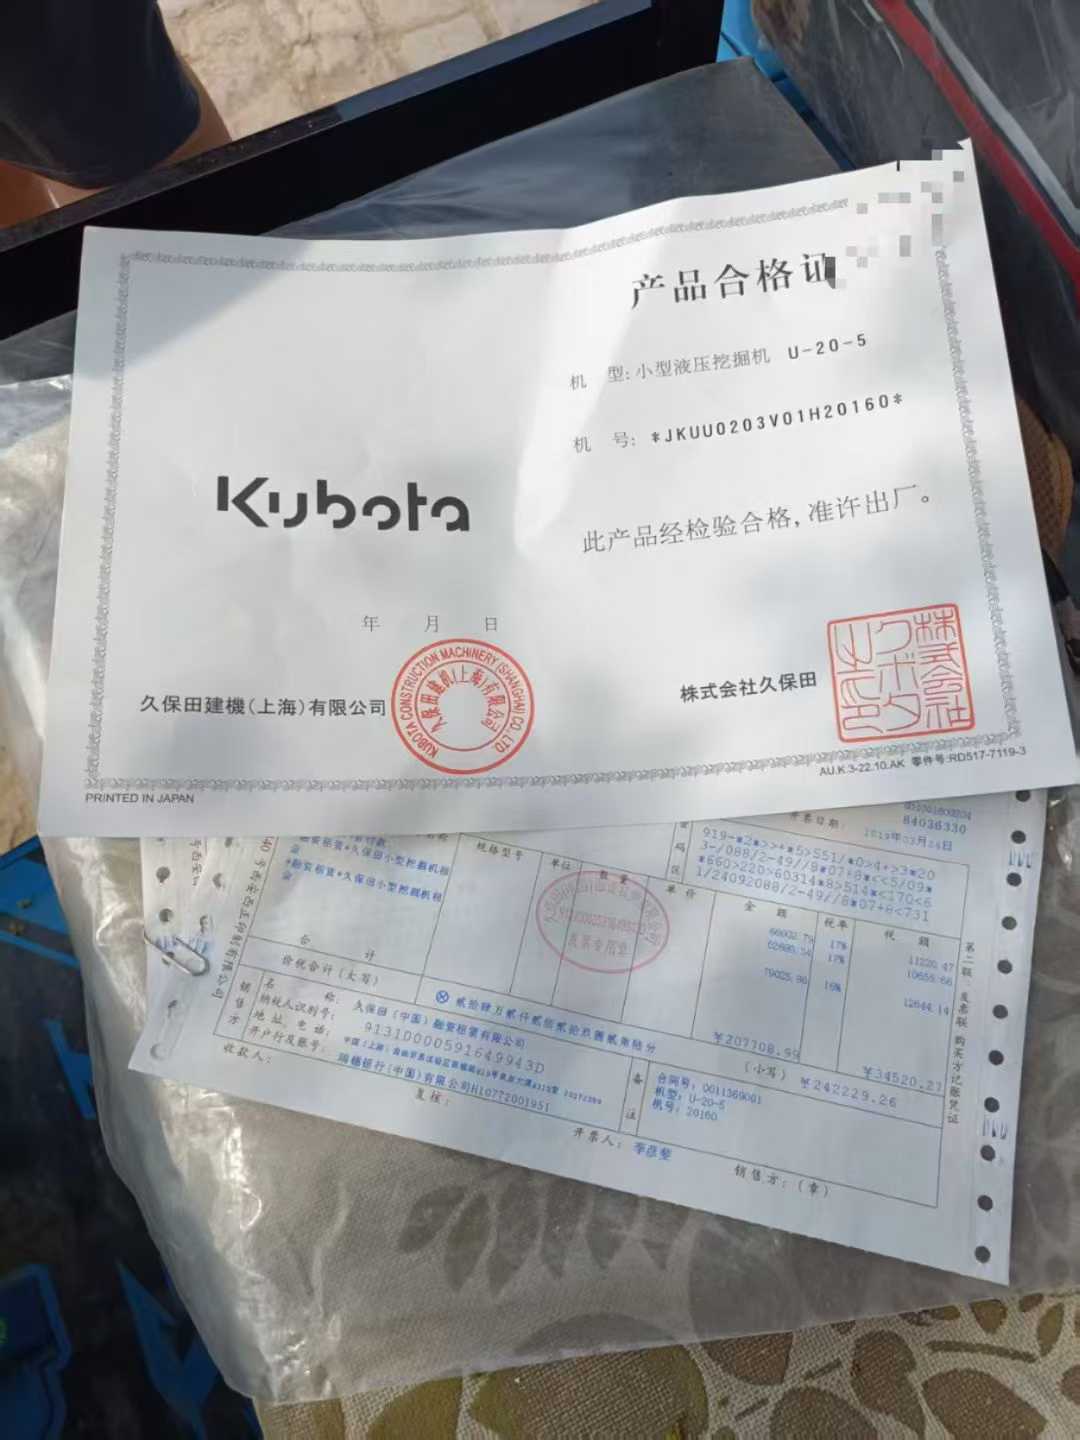 产品合格证
机 型: 小型液压挖掘机 U-20-5
机 号: *JKUU0203V01H20160*
此产品经检验合格, 准许出厂。
Kubota
年 月 日
久保田建機(上海)有限公司
KUBOTA CONSTRUCTION MACHINERY (SHANGHAI) CO., LTD.
久保田建机(上海)有限公司
株式会社久保田
株式会社クボタ之印
AU.K.3-22.10.AK 零件号:RD517-7119-3
PRINTED IN JAPAN
84036330
开票日期: 2019年03月26日
规格型号 单位 数量 单价 金额 税率 税额
919-*2*>>+*5>551/*0>4+>3*20
3-/088/2-49//8*07+8*<<5/09*
*660>220>60314*8>514*<170<6
1/24092088/2-49//8*07+8<731
*融资租赁*久保田小型挖掘机租金
66002.79 17% 11220.47
62680.34 17% 10655.66
79025.86 16% 12644.14
发票专用章
合 计
￥207708.99 ￥34520.27
价税合计(大写)
⊗ 贰拾肆万贰仟贰佰贰拾玖圆贰角陆分
(小写) ￥242229.26
销售方
名 称: 久保田(中国)融资租赁有限公司
纳税人识别号: 91310000591649943D
地址、电话:
开户行及账号: 瑞穗银行(中国)有限公司H10772001951
备注
合同号: 0011369001
机型: U-20-5
机号: 20160
收款人:
复核:
开票人:
销售方: (章)
第二联: 发票联 购买方记账凭证